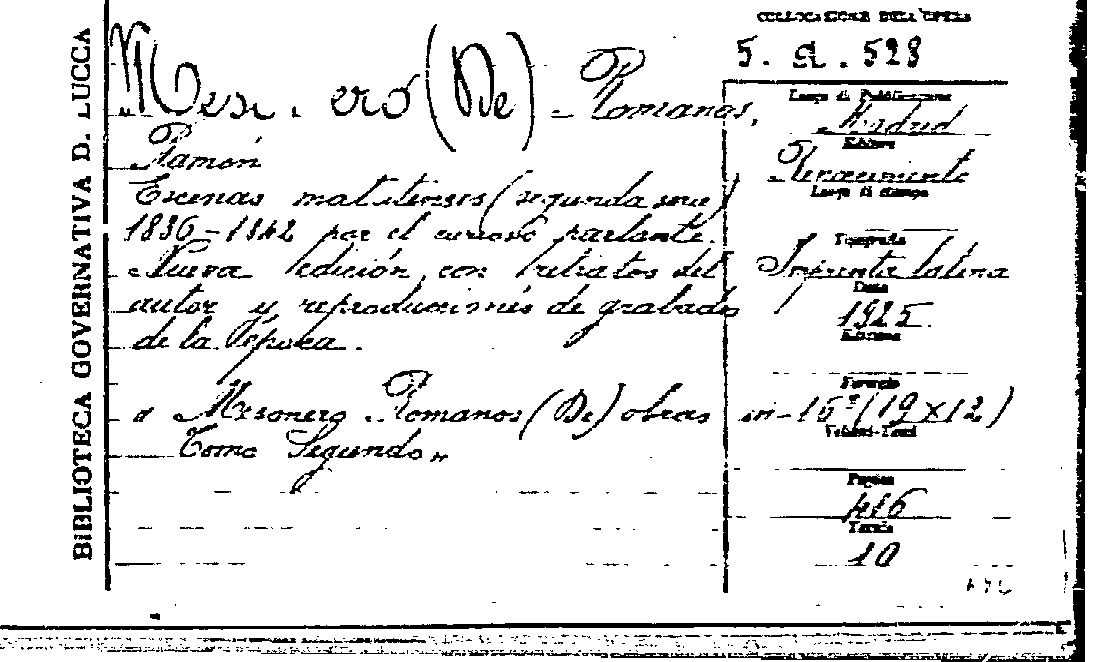 BIBLIOTECA GOVERNATIVA D. LUCCA
COLLOCAZIONE DELL'OPERA
5. a. 528
Mesonero (De) - Romanos,
Ramón
Escenas matritenses (segunda serie)
1836-1842 por el curioso parlante.
Nueva edición, con retratos del
autor y reproducciones de grabados
de la época.
Mesonero Romanos (De) obras
Tomo Segundo"
Luogo di Pubblicazione
Madrid
Editore
Renacimiento
Luogo di stampa
Tipografia
Imprenta latina
Data
1925
Edizione
Formato
in-16º (19 x 12)
Volumi-Tomi
Pagine
416
Tavole
10